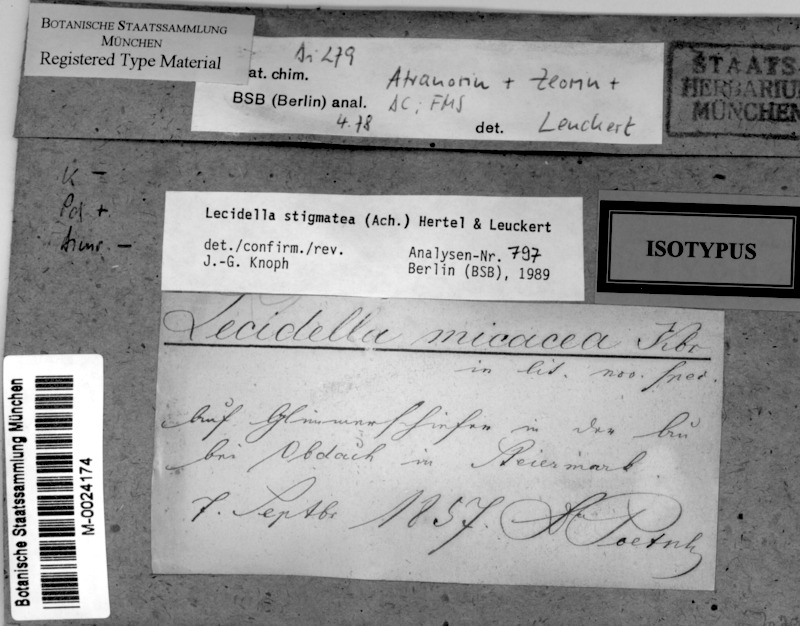 BOTANISCHE STAATSSAMMLUNG
MÜNCHEN
Registered Type Material
at. chim.
Atranorin + Zeorin +
BSB (Berlin) anal.
4.78
det. Leuckert
STAATS
HERBARIUM
MÜNCHEN
K –
Pd +
Lecidella stigmatea (Ach.) Hertel & Leuckert
det./confirm./rev.
J.-G. Knoph
Analysen-Nr. 797
Berlin (BSB), 1989
ISOTYPUS
Lecidella micacea Kbr
in lit. nov. spec.
auf Glimmerschiefer in der Au
bei Obdach in Steiermark
7. Septbr 1857. Dr Poetsch
Botanische Staatssammlung München
M-0024174